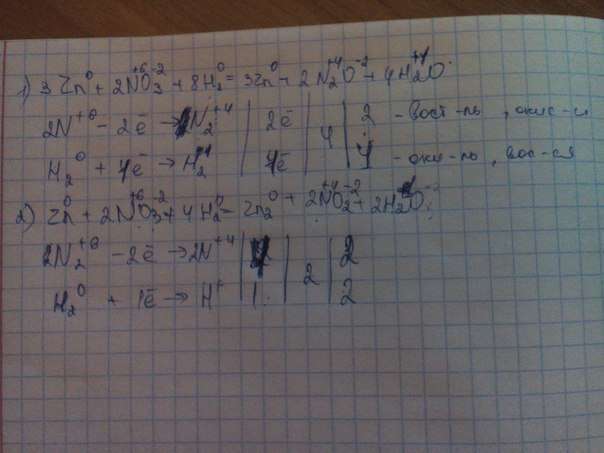 1) 3Zn⁰ + 2N⁺⁶O₃⁻² + 8H₂⁰ = 3Zn⁰ + 2N₂⁺⁴O⁻² + 4H₂⁺¹O
2N⁺⁶ - 2ē → N₂⁺⁴ | 2ē | 4 | 2 - вост-ль, окис-я
H₂⁰ + 1ē → H₂⁺¹ | 1ē | | 4 - оки-ль, вос-ся
2) Zn⁰ + 2N⁺⁶O₃⁻² + 4H₂⁰ = Zn₂⁰ + 2N⁺⁴O₂⁻² + 2H₂O
2N₂⁺⁶ - 2ē → 2N⁺⁴ | | 2 | 2
H₂⁰ + 1ē → H⁺ | 1 | | 2